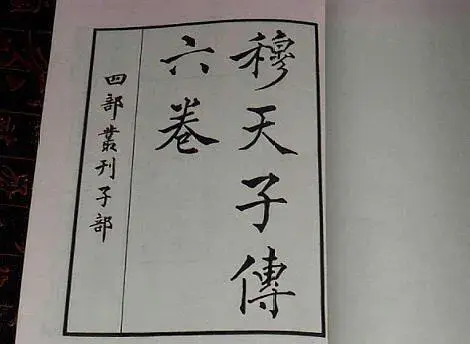 穆天子傳
六卷
四部叢刊子部